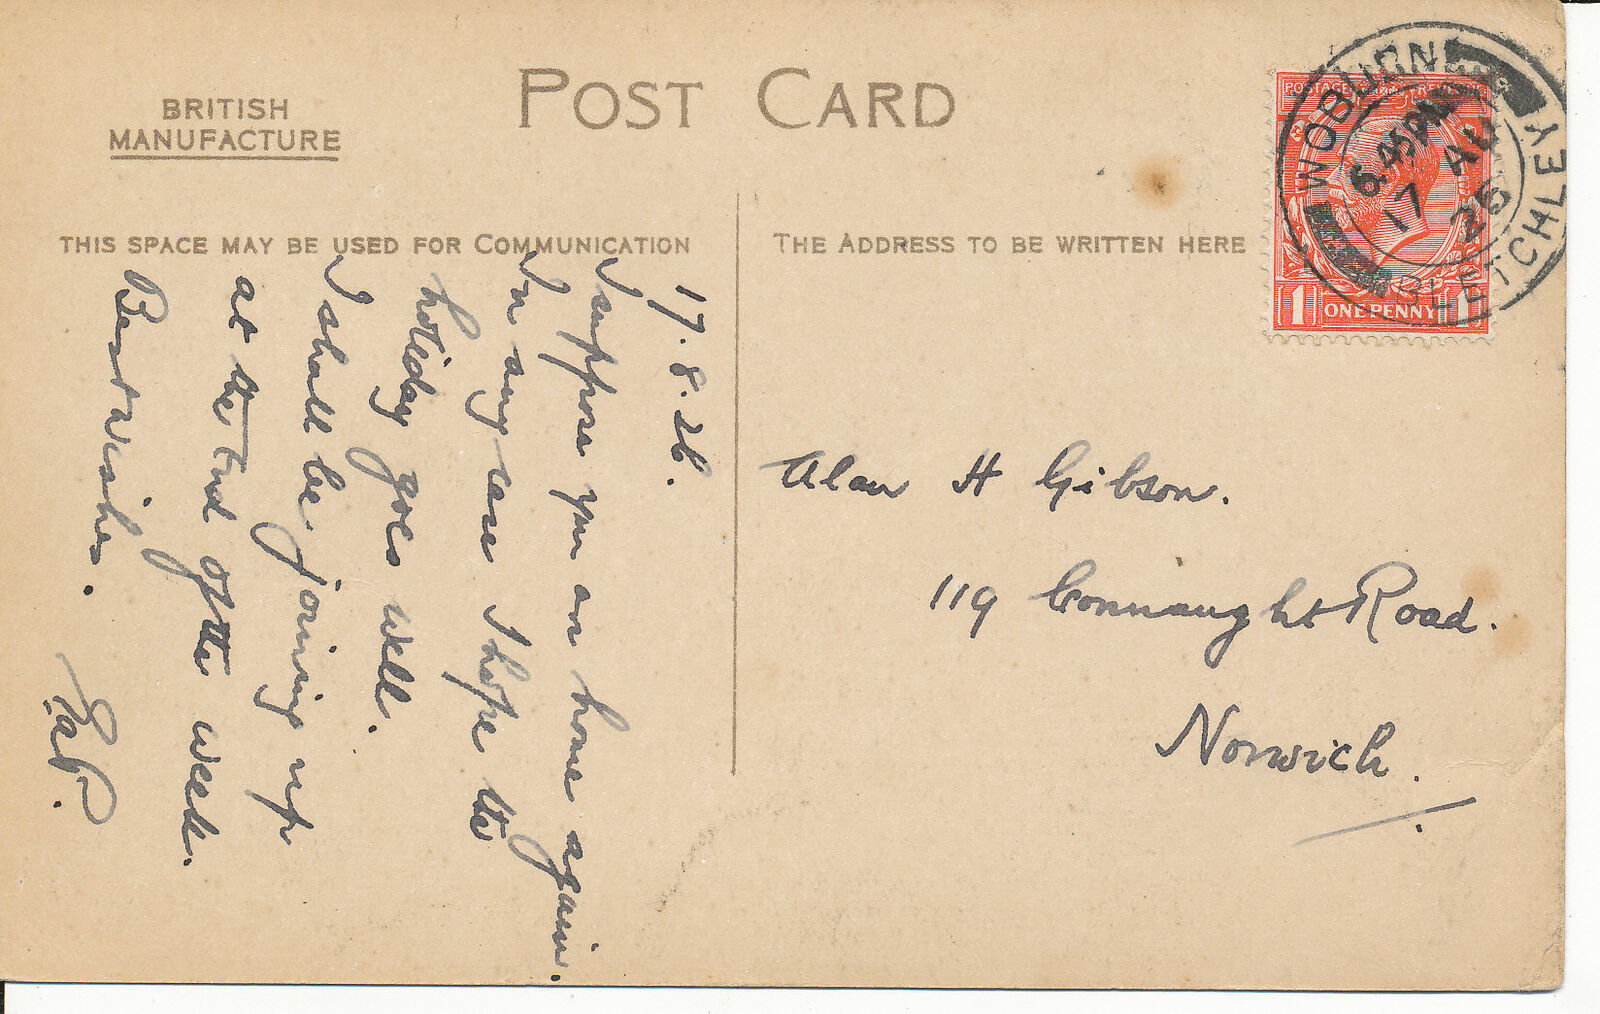 POST CARD
BRITISH
MANUFACTURE
THIS SPACE MAY BE USED FOR COMMUNICATION
THE ADDRESS TO BE WRITTEN HERE
17.8.26.
I suppose you are home again.
In any case I hope the
holiday goes well.
I shall be joining up
at the End of the week.
Best Wishes.
Alan H Gibson.
119 Connaught Road.
Norwich.
WOBURN
BLETCHLEY
6.45PM
17 AU
26
POSTAGE REVENUE
1 ONE PENNY 1